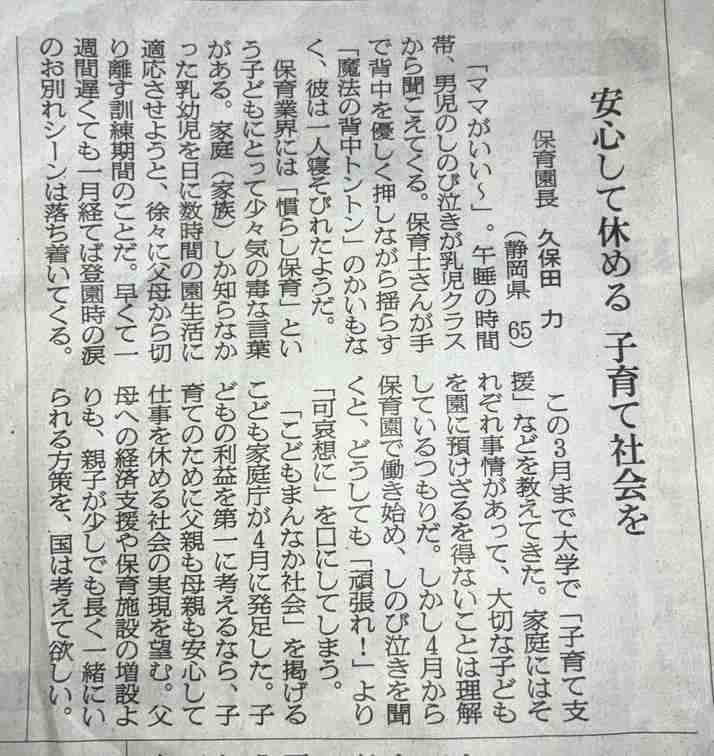 安心して休める 子育て社会を
保育園長 久保田 力
(静岡県 65)
「ママがいい〜」。午睡の時間
帯、男児のしのび泣きが乳児クラス
から聞こえてくる。保育士さんが手
で背中を優しく押しながら揺らす
「魔法の背中トントン」のかいもな
く、彼は一人寝そびれたようだ。
保育業界には「慣らし保育」とい
う子どもにとって少々気の毒な言葉
がある。家庭(家族)しか知らなか
った乳幼児を日に数時間の園生活に
適応させようと、徐々に父母から切
り離す訓練期間のことだ。早くて一
週間遅くても一月経てば登園時の涙
のお別れシーンは落ち着いてくる。
この3月まで大学で「子育て支
援」などを教えてきた。家庭にはそ
れぞれ事情があって、大切な子ども
を園に預けざるを得ないことは理解
しているつもりだ。しかし4月から
保育園で働き始め、しのび泣きを聞
くと、どうしても「頑張れ!」より
「可哀想に」を口にしてしまう。
「こどもまんなか社会」を掲げる
こども家庭庁が4月に発足した。子
どもの利益を第一に考えるなら、子
育てのために父親も母親も安心して
仕事を休める社会の実現を望む。父
母への経済支援や保育施設の増設よ
りも、親子が少しでも長く一緒にい
られる方策を、国は考えて欲しい。